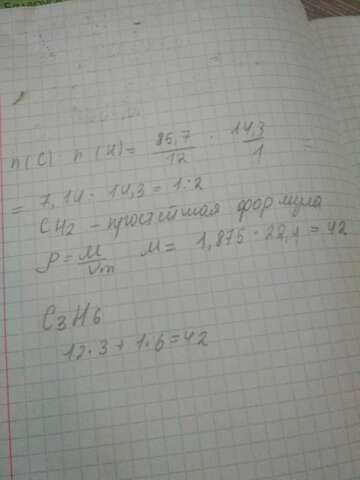 n(C) : n(H) = 85,7/12 : 14,3/1 =
= 7,14 : 14,3 = 1:2
CH2 - простейшая формула
ρ = M/Vm M = 1,875 · 22,4 = 42
C3H6
12·3 + 1·6 = 42